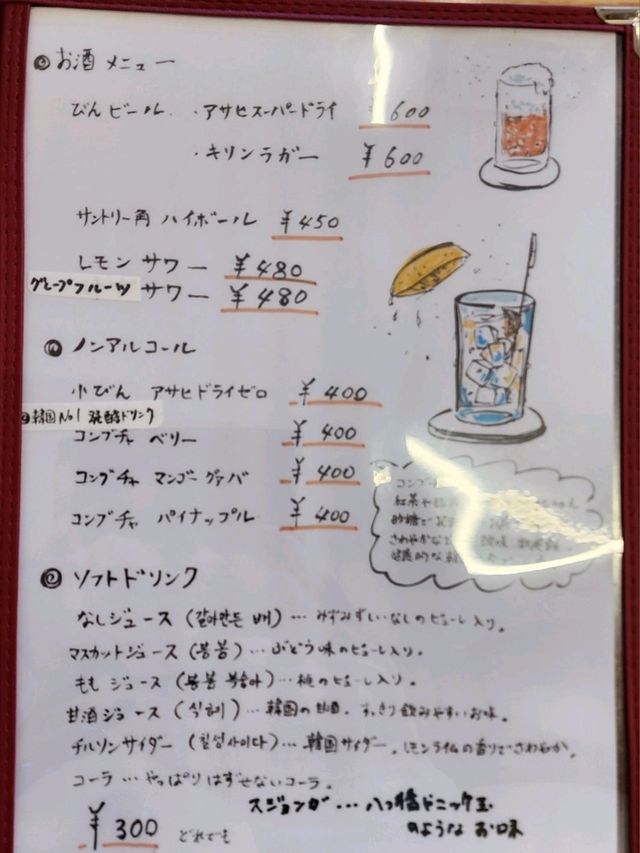 お酒 メニュー
びんビール ・アサヒスーパードライ ¥600
・キリンラガー ¥600
サントリー角 ハイボール ¥450
レモン サワー ¥480
グレープフルーツ サワー ¥480
ノンアルコール
小びん アサヒドライゼロ ¥400
韓国No1 発酵ドリンク
コンブチャ ベリー ¥400
コンブチャ マンゴーグァバ ¥400
コンブチャ パイナップル ¥400
紅茶や
砂糖で
さわやかな
健康的な
ソフトドリンク
なしジュース (갈아만든 배) … みずみずしいなしのピューレ入り。
マスカットジュース (봉봉) … ぶどう味のピューレ入り。
ももジュース (봉봉 복숭아) … 桃のピューレ入り。
甘酒ジュース (식혜) … 韓国の甘酒。すっきり飲みやすいお味。
チルソンサイダー (칠성사이다) … 韓国サイダー。レモンライムの香りでさわやか。
コーラ … やっぱりはずせないコーラ。
スジョンガ … 八つ橋ドニック玉
のような お味
¥300 どれでも